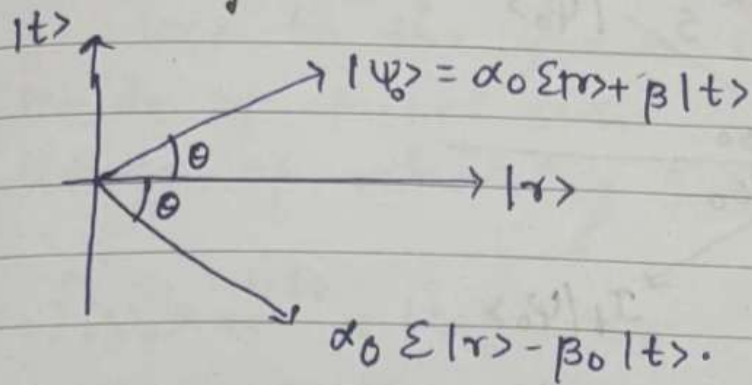 |t>
|Ψ₀> = α₀ Σ|r> + β |t>
θ
|r>
θ
α₀ Σ |r> - β₀ |t>.